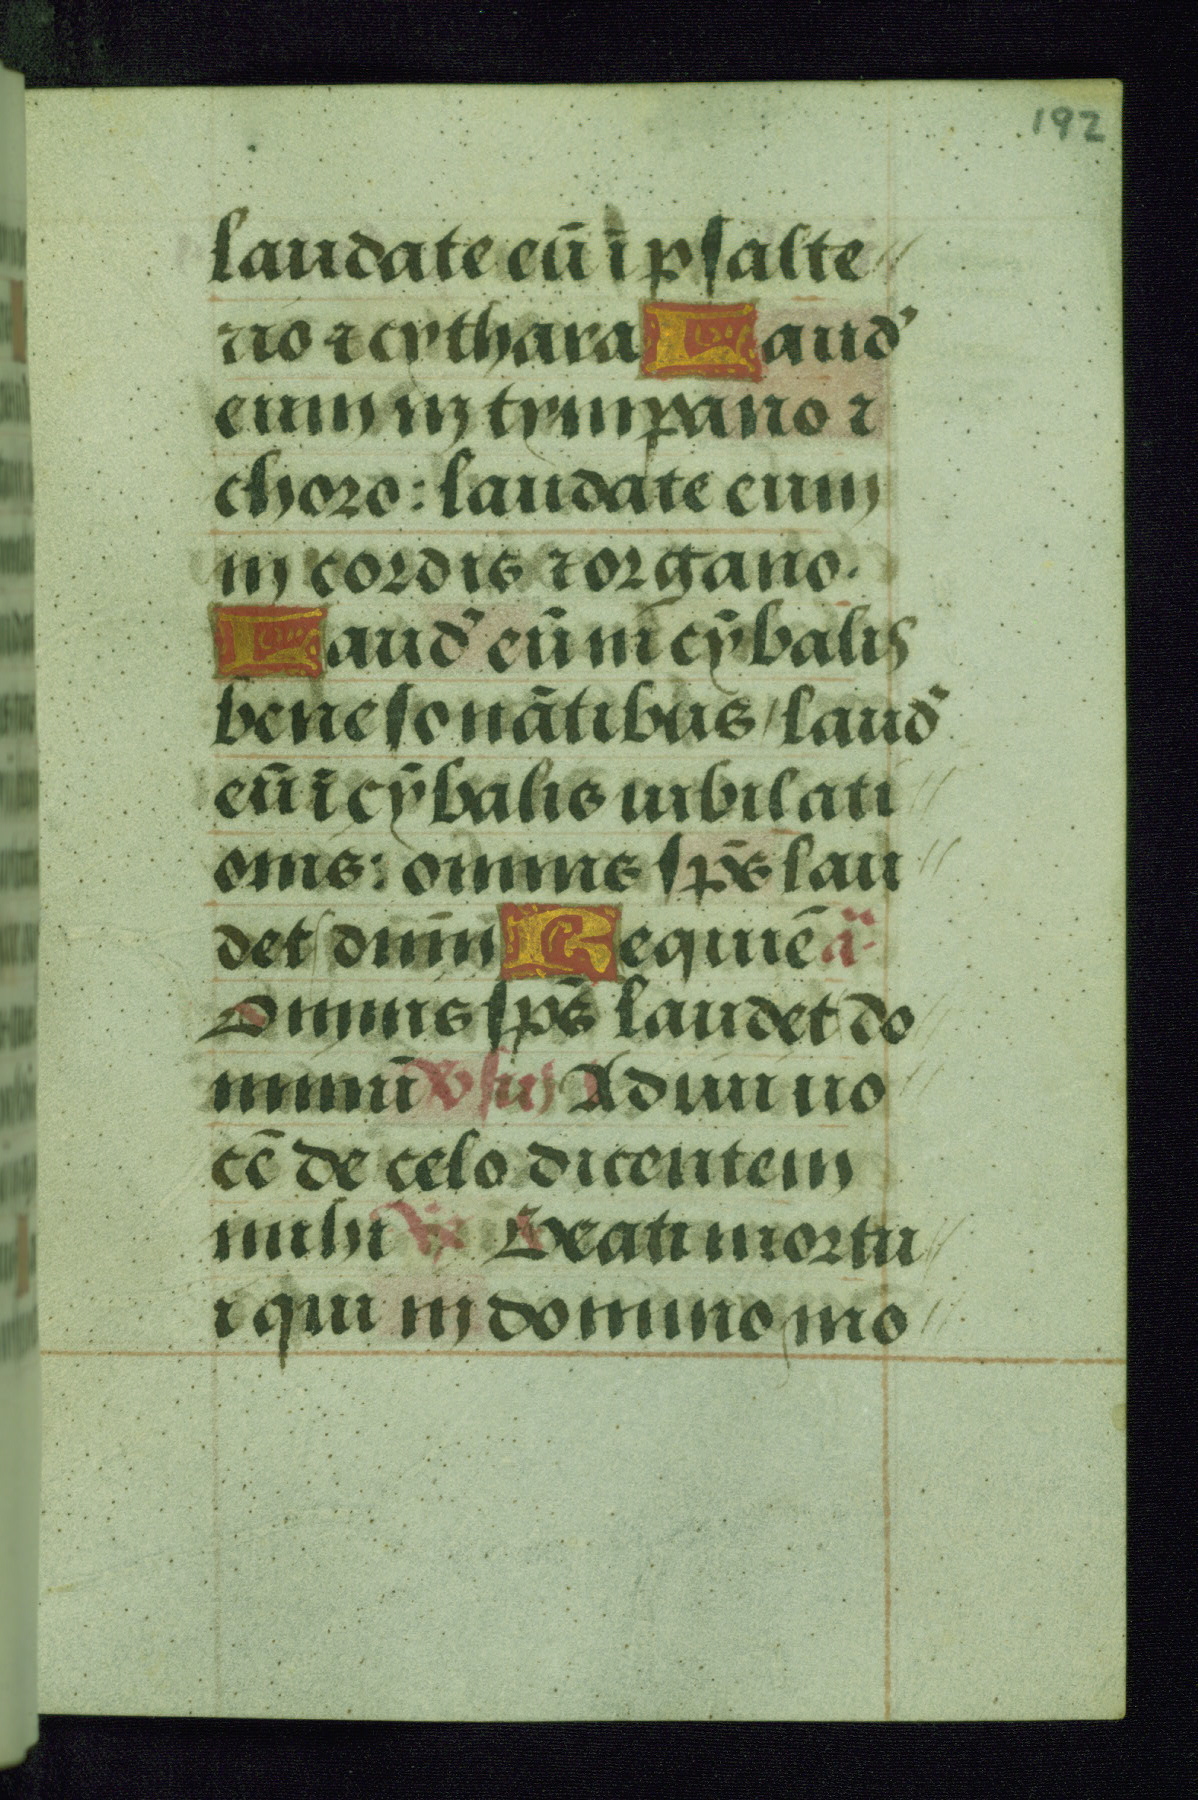 192
laudate eū ī psalte //
rio ⁊ cythara Laud'
eum in tympano ⁊
choro: laudate eum
in cordis ⁊ organo.
Laud' eū in cȳbalis
benesonātibus / laud'
eū ī cȳbalis iubilati //
onis: omnis sp̄s lau //
det dnm̄ Requiē ā
Omnis sp̄s laudet do //
minū Vsus Adiui uo //
cē de celo dicentem
mihi Beati mortu //
i qui in domino mo //